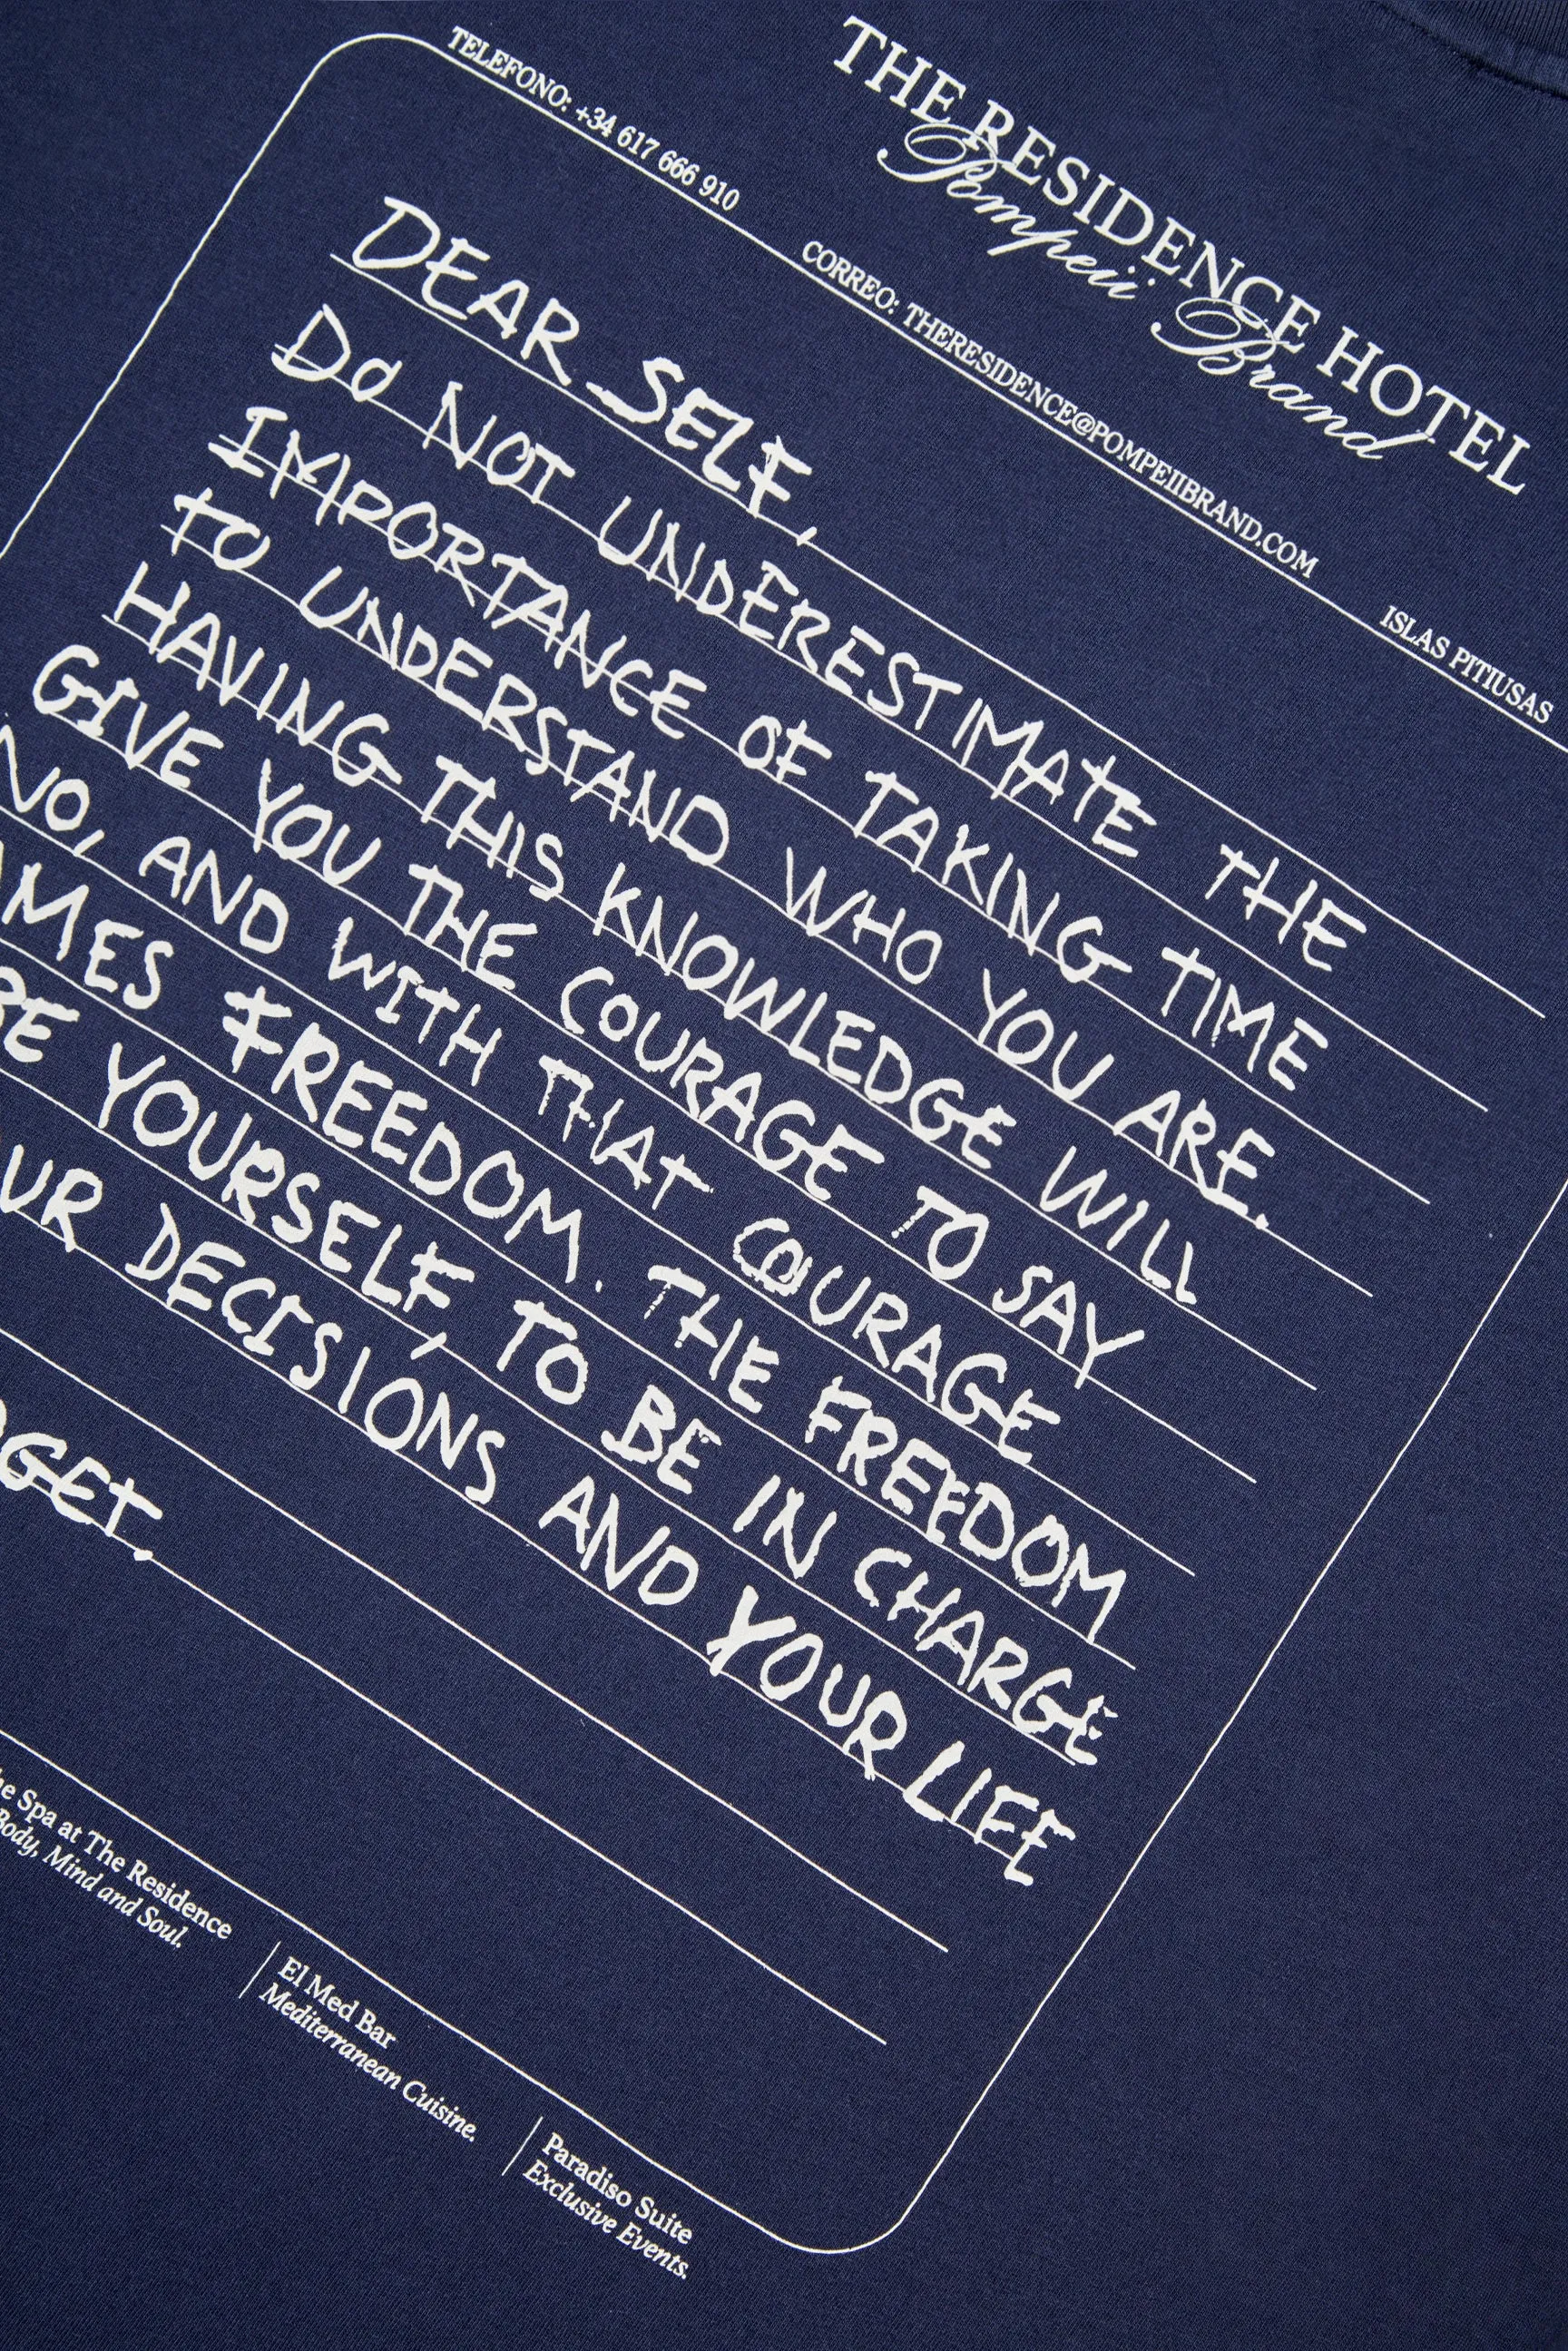 THE RESIDENCE HOTEL
Pompeii Brand
TELEFONO: +34 617 666 910
CORREO: THERESIDENCE@POMPEIIBRAND.COM
ISLAS PITIUSAS
DEAR SELF,
DO NOT UNDERESTIMATE THE
IMPORTANCE OF TAKING TIME
TO UNDERSTAND WHO YOU ARE.
HAVING THIS KNOWLEDGE WILL
GIVE YOU THE COURAGE TO SAY
NO, AND WITH THAT COURAGE
AMES FREEDOM. THE FREEDOM
RE YOURSELF, TO BE IN CHARGE
UR DECISIONS AND YOUR LIFE
RGET.
he Spa at The Residence
Body, Mind and Soul.
El Med Bar
Mediterranean Cuisine.
Paradiso Suite
Exclusive Events.